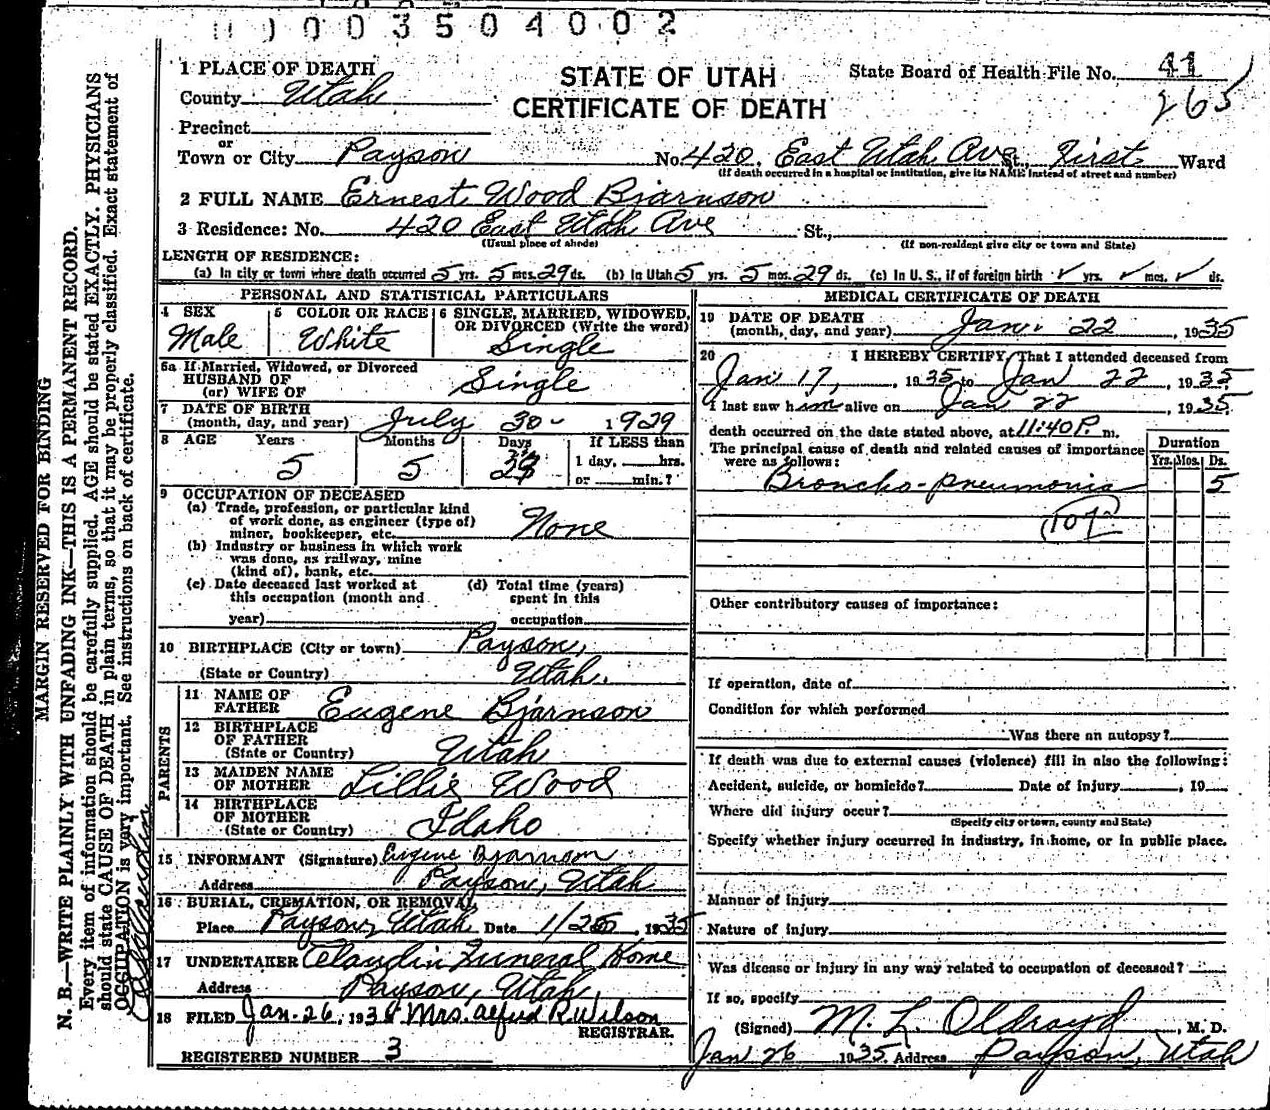 0003504002
1 PLACE OF DEATH
STATE OF UTAH
CERTIFICATE OF DEATH
State Board of Health File No. 41
265
County Utah
Precinct
or
Town or City Payson No. 420. East Utah Ave St., First Ward
(If death occurred in a hospital or institution, give its NAME instead of street and number)
2 FULL NAME Ernest Wood Bjarnson
3 Residence: No. 420 East Utah Ave St.,
(Usual place of abode) (If non-resident give city or town and State)
LENGTH OF RESIDENCE:
(a) In city or town where death occurred 5 yrs. 5 mos. 29 ds. (b) In Utah 5 yrs. 5 mos. 29 ds. (c) In U. S., if of foreign birth ✓ yrs. ✓ mos. ✓ ds.
PERSONAL AND STATISTICAL PARTICULARS
4 SEX
Male
5 COLOR OR RACE
White
6 SINGLE, MARRIED, WIDOWED,
OR DIVORCED (Write the word)
Single
5a If Married, Widowed, or Divorced
HUSBAND OF
(or) WIFE OF Single
7 DATE OF BIRTH
(month, day, and year) July 30 - 1929
8 AGE Years Months Days If LESS than
5 5 1 day, hrs.
or min.?
9 OCCUPATION OF DECEASED
(a) Trade, profession, or particular kind
of work done, as engineer (type of)
miner, bookkeeper, etc. None
(b) Industry or business in which work
was done, as railway, mine
(kind of), bank, etc.
(c) Date deceased last worked at
this occupation (month and
year)
(d) Total time (years)
spent in this
occupation
10 BIRTHPLACE (City or town) Payson,
(State or Country) Utah.
PARENTS
11 NAME OF
FATHER Eugene Bjarnson
12 BIRTHPLACE
OF FATHER
(State or Country) Utah
13 MAIDEN NAME
OF MOTHER Lillie Wood
14 BIRTHPLACE
OF MOTHER
(State or Country) Idaho
15 INFORMANT (Signature) Eugene Bjarnson
Address Payson, Utah
16 BURIAL, CREMATION, OR REMOVAL
Place Payson, Utah Date 1/25, 1935
17 UNDERTAKER Claudin Funeral Home
Address Payson, Utah
18 FILED Jan. 26, 1935 Mrs. Alfred R. Wilson
REGISTRAR.
REGISTERED NUMBER 3
MEDICAL CERTIFICATE OF DEATH
19 DATE OF DEATH
(month, day, and year) Jan. 22, 1935
20 I HEREBY CERTIFY, That I attended deceased from
Jan 17, 1935 to Jan 22, 1935
I last saw him alive on Jan 22, 1935.
death occurred on the date stated above, at 11:40 P. m.
The principal cause of death and related causes of importance
were as follows:
Duration
Yrs. Mos. Ds.
Broncho-pneumonia 5
Other contributory causes of importance:
If operation, date of
Condition for which performed
Was there an autopsy?
If death was due to external causes (violence) fill in also the following:
Accident, suicide, or homicide? Date of injury , 19
Where did injury occur?
(Specify city or town, county and State)
Specify whether injury occurred in industry, in home, or in public place.
Manner of injury
Nature of injury
Was disease or injury in any way related to occupation of deceased?
If so, specify
(Signed) M. L. Oldroyd, M. D.
Jan 26 1935 Address Payson, Utah
MARGIN RESERVED FOR BINDING
N. B.—WRITE PLAINLY WITH UNFADING INK—THIS IS A PERMANENT RECORD.
Every item of information should be carefully supplied. AGE should be stated EXACTLY. PHYSICIANS
should state CAUSE OF DEATH in plain terms, so that it may be properly classified. Exact statement of
OCCUPATION is very important. See instructions on back of certificate.